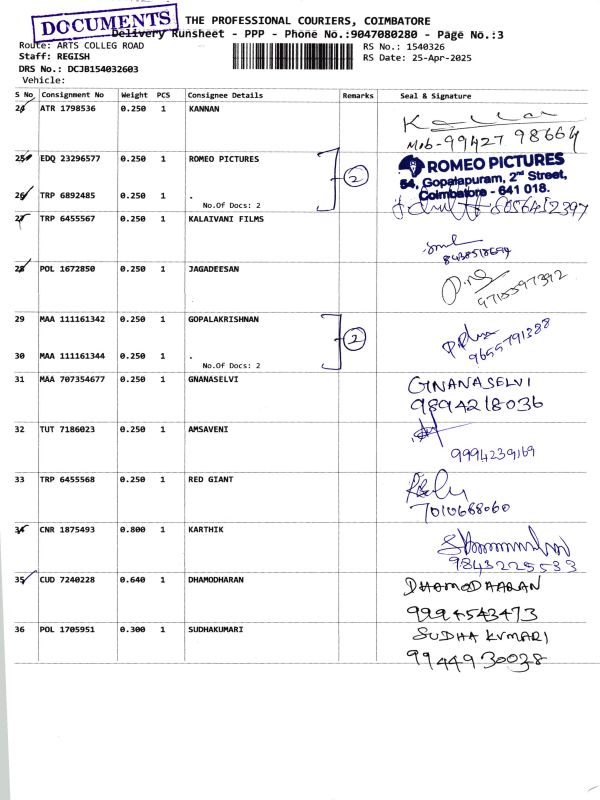 DOCUMENTS
THE PROFESSIONAL COURIERS, COIMBATORE
Delivery Runsheet - PPP - Phone No.:9047080280 - Page No.:3
Route: ARTS COLLEG ROAD
RS No.: 1540326
Staff: REGISH
RS Date: 25-Apr-2025
DRS No.: DCJB154032603
Vehicle:
S No Consignment No Weight PCS Consignee Details Remarks Seal & Signature
24 ATR 1798536 0.250 1 KANNAN
Mob-99427 98664
25 EDQ 23296577 0.250 1 ROMEO PICTURES
2
ROMEO PICTURES
54, Gopalapuram, 2nd Street,
Coimbatore - 641 018.
26 TRP 6892485 0.250 1 .
No.Of Docs: 2
8056452397
27 TRP 6455567 0.250 1 KALAIVANI FILMS
28 POL 1672850 0.250 1 JAGADEESAN
9715597392
29 MAA 111161342 0.250 1 GOPALAKRISHNAN
2
9655791388
30 MAA 111161344 0.250 1 .
No.Of Docs: 2
31 MAA 707354677 0.250 1 GNANASELVI
GNANASELVI
9894218036
32 TUT 7186023 0.250 1 AMSAVENI
9994239169
33 TRP 6455568 0.250 1 RED GIANT
7010668060
34 CNR 1875493 0.800 1 KARTHIK
9843225533
35 CUD 7240228 0.640 1 DHAMODHARAN
DHAMODAARAN
9994543473
36 POL 1705951 0.300 1 SUDHAKUMARI
SUDHA KUMARI
9944930038